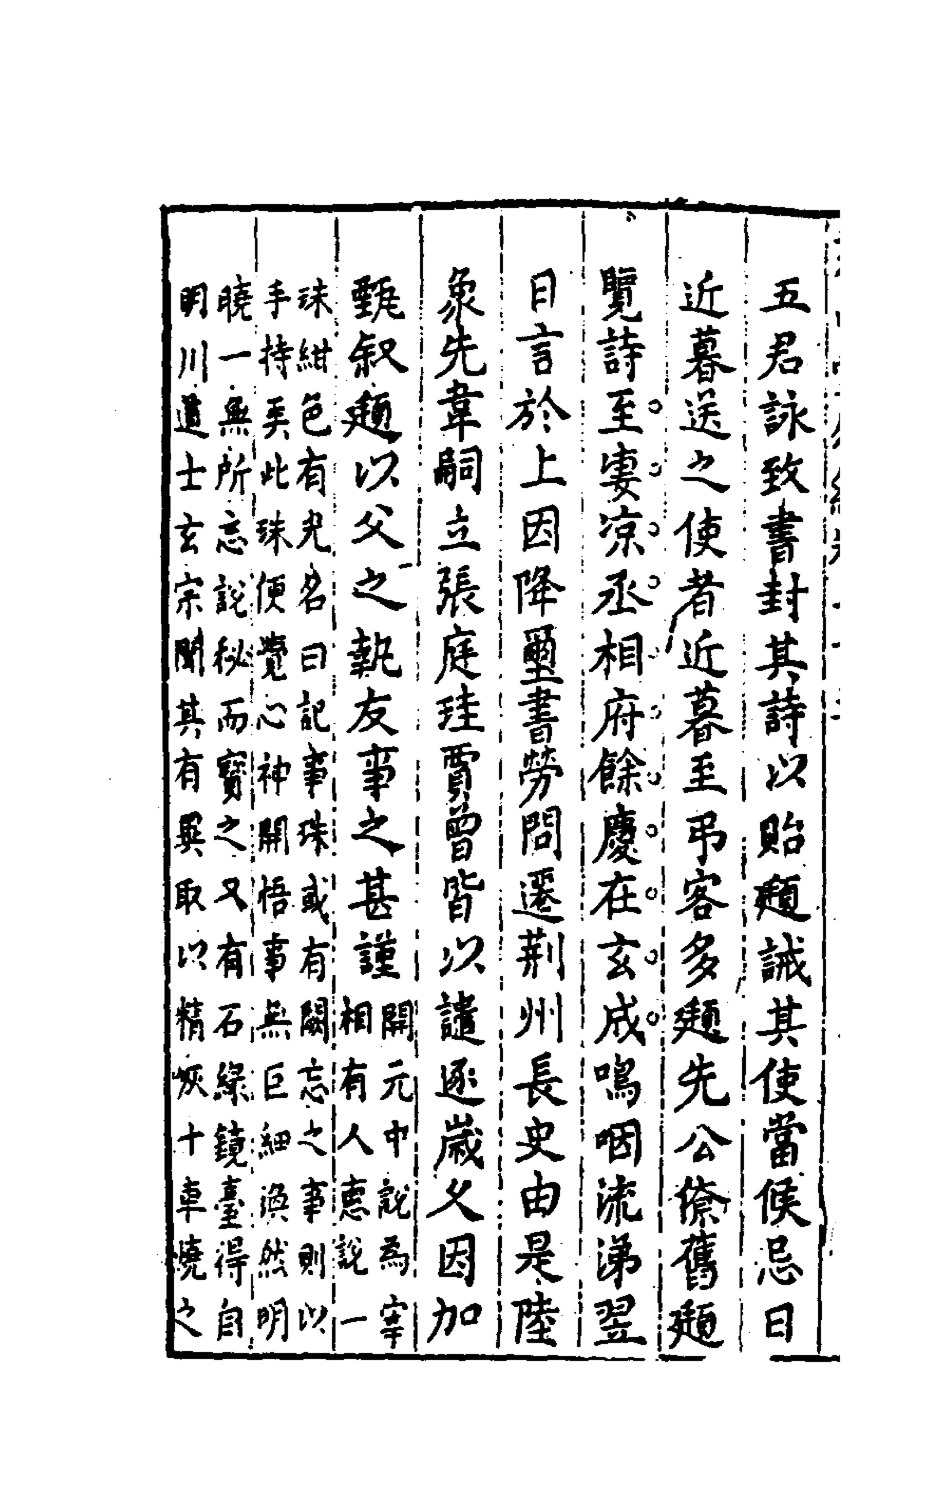 五君詠致書封其詩以貽頲誡其使當候忌日
近暮送之使者近暮至弔客多頲先公僚舊頲
覽詩至凄凉丞相府餘慶在玄成嗚咽流涕翌
日言於上因降璽書勞問遷荆州長史由是陸
象先韋嗣立張庭珪賈曾皆以譴逐歲久因加
甄叙頲以父之執友事之甚謹
開元中說為宰
相有人惠說一
珠紺色有光名曰記事珠或有闕忘之事則以
手持弄此珠便覺心神開悟事無巨細渙然明
曉一無所忘說秘而寶之又有石綠鏡臺得自
明川道士玄宗聞其有異取以精炭十車燒之